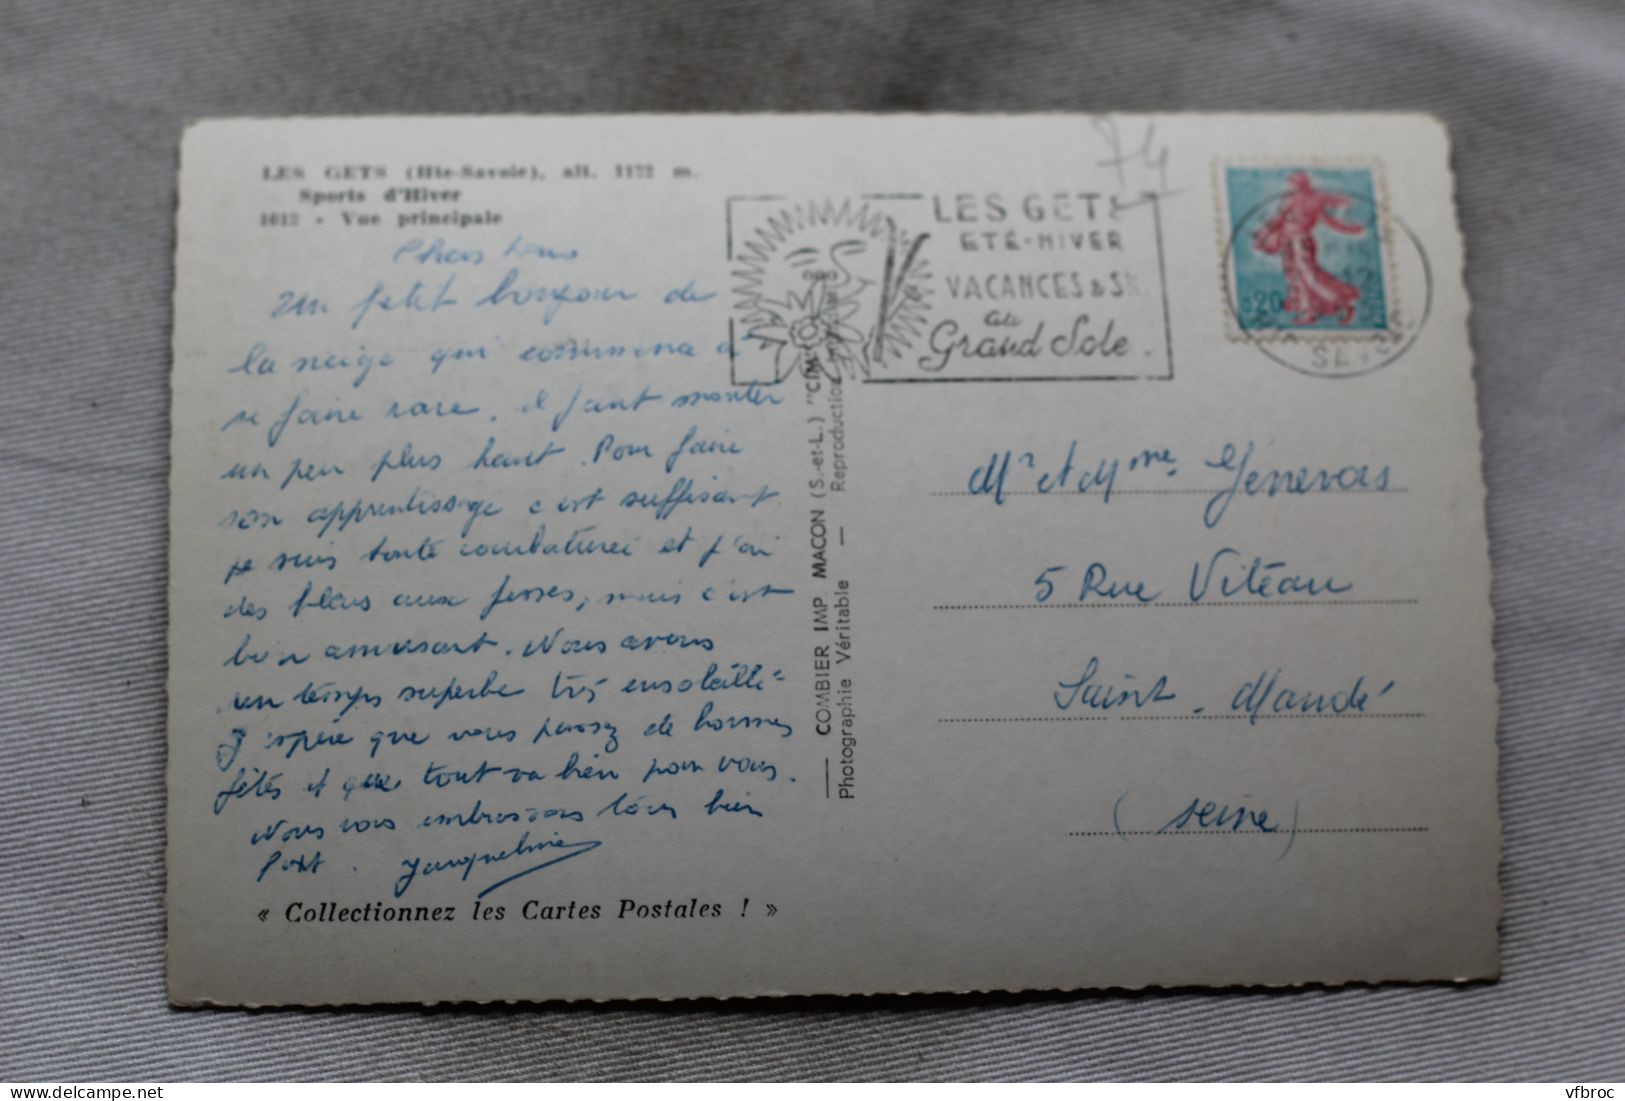 LES GETS (Hte-Savoie), alt. 1172 m.
Sports d'Hiver
1612 - Vue principale
Chers tous
un petit bonjour de
la neige qui commence à
se faire rare, il faut monter
un peu plus haut. Pour faire
son apprentissage c'est suffisant
je suis toute courbaturée et j'ai
des bleus aux fesses, mais c'est
bien amusant. Nous avons
un temps superbe très ensoleillé
J'espère que vous passez de bonnes
fêtes et que tout va bien pour vous.
Nous vous embrassons tous bien
fort. Jacqueline
« Collectionnez les Cartes Postales ! »
COMBIER IMP. MACON (S.-et-L.) "CIM"
Photographie Véritable — Reproduction
74
LES GETS
ETE-HIVER
VACANCES & SK
au
Grand Sole
0,20
SAVOIE
Mr et Mme Génevois
5 Rue Viteau
Saint-Mandé
(Seine)
delcampe.net
vfbroc